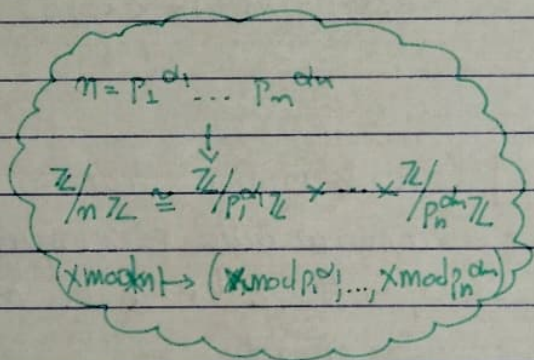 n = p₁^α₁ ... pₙ^αₙ
↓
ℤ/nℤ ≅ ℤ/p₁^α₁ℤ × ... × ℤ/pₙ^αₙℤ
x mod n ↦ (x mod p₁^α₁, ..., x mod pₙ^αₙ)